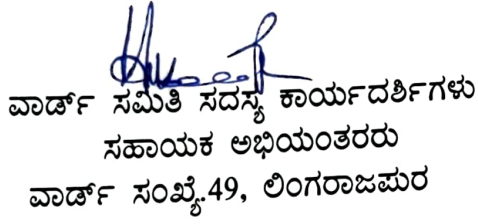 ವಾರ್ಡ್ ಸಮಿತಿ ಸದಸ್ಯ ಕಾರ್ಯದರ್ಶಿಗಳು
ಸಹಾಯಕ ಅಭಿಯಂತರರು
ವಾರ್ಡ್ ಸಂಖ್ಯೆ.49, ಲಿಂಗರಾಜಪುರ